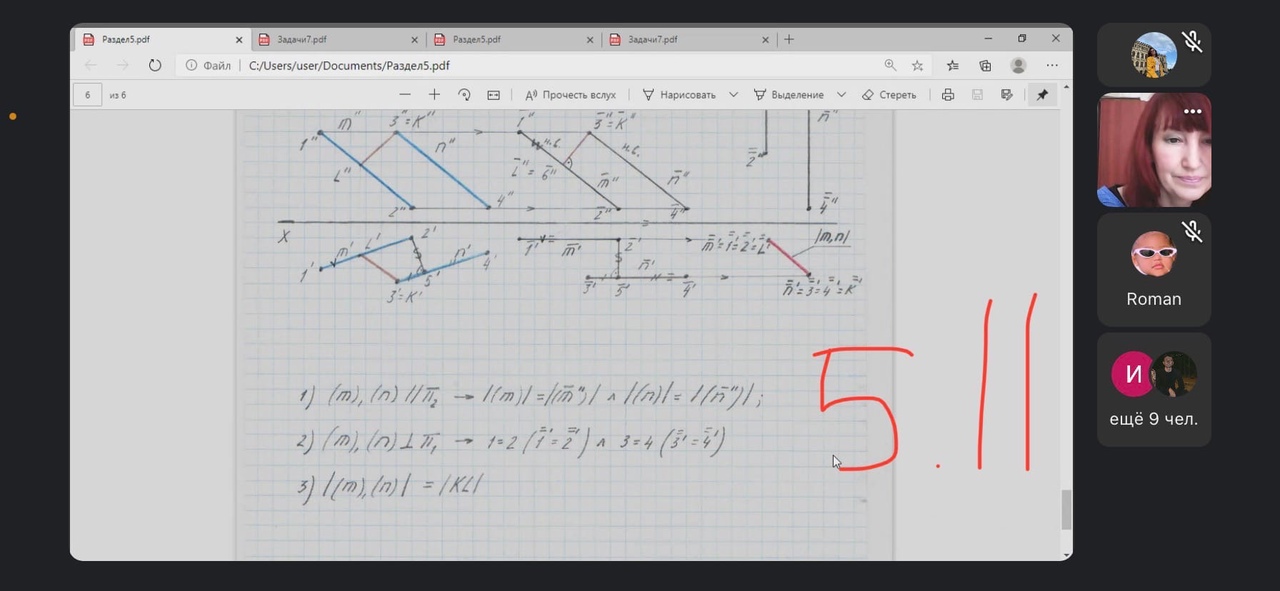 Раздел5.pdf
Задачи7.pdf
Раздел5.pdf
Задачи7.pdf
Файл
C:/Users/user/Documents/Раздел5.pdf
6
из 6
Прочесть вслух
Рисовать
Выделение
Стереть
1" m" 3"=K" n" L" 2" 4"
1̄" н.в. 3̄"=K̄" н.в. L̄"=6̄" m̄" n̄" 2̄" 4̄"
2̿" n̿" 4̿"
X
1' m' L' 2' 5' n' 4' 3'=K'
1̄' m̄' 2̄' n̄' 3̄' 5̄' 4̄'
m̿'=1̿'=2̿'=L̿' |m,n|
n̿'=3̿'=4̿'=K̿'
1) (m), (n) // π₂ → |(m)|=|(m̄")| ∧ |(n)|=|(n̄")|;
2) (m), (n) ⊥ π₁ → 1=2 (1̿'=2̿') ∧ 3=4 (3̿'=4̿')
3) |(m),(n)| = |KL|
5.11
Roman
И
ещё 9 чел.